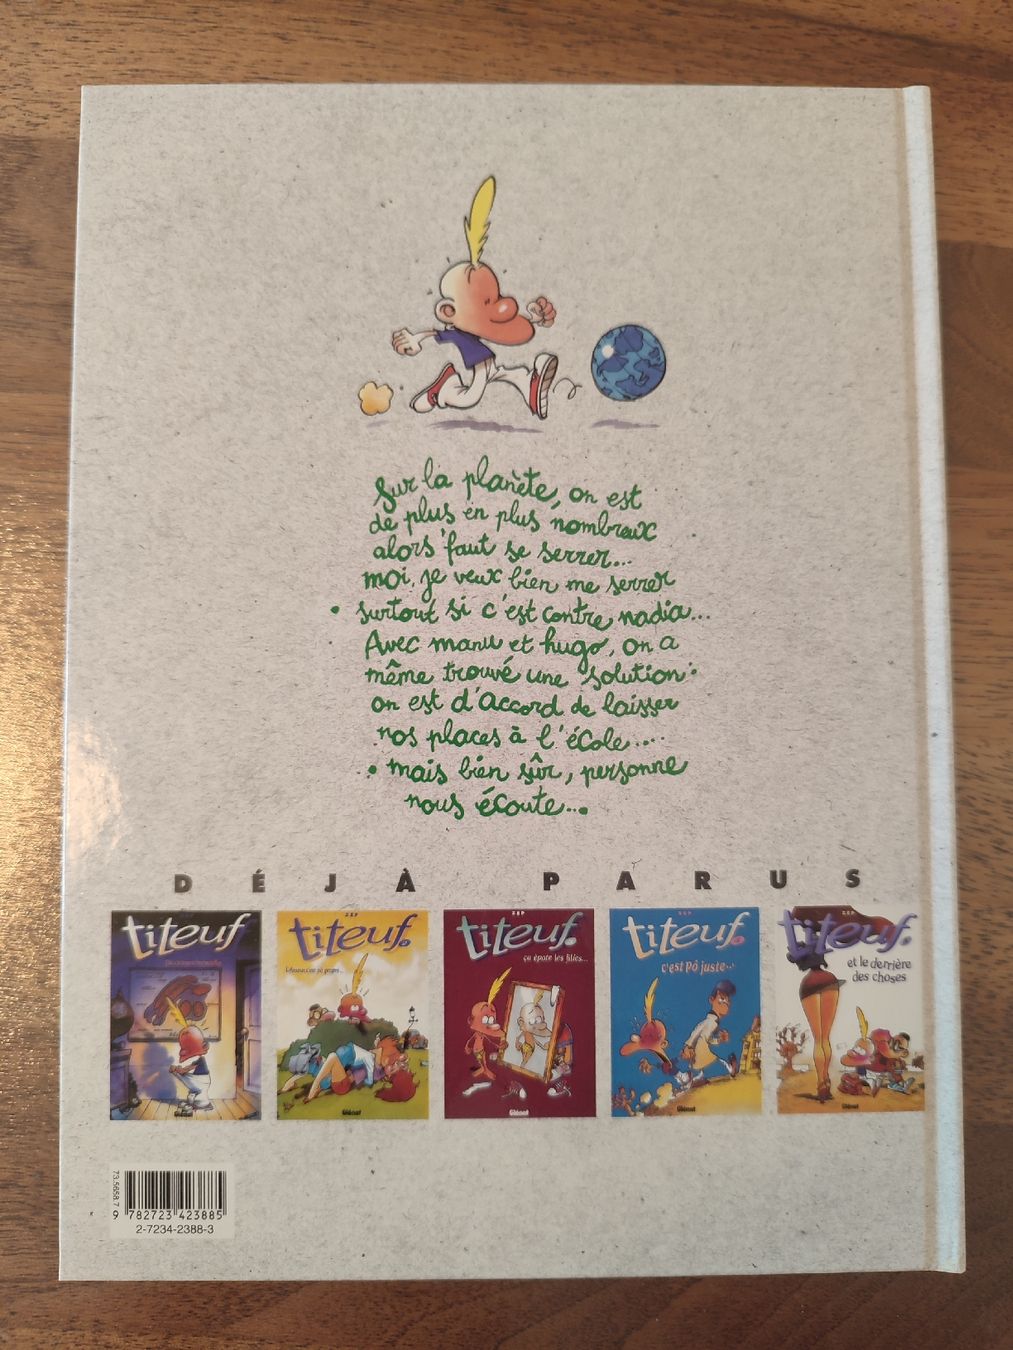 Sur la planète, on est
de plus en plus nombreux
alors 'faut se serrer...
moi, je veux bien me serrer
surtout si c'est contre nadia...
Avec manu et hugo, on a
même trouvé une solution:
on est d'accord de laisser
nos places à l'école....
mais bien sûr, personne
nous écoute...
DÉJÀ PARUS
titeuf
Glénat
ZEP
titeuf.
L'Amour, c'est pô propre...
Glénat
ZEP
titeuf.
ça épate les filles...
Glénat
ZEP
titeuf.
c'est pô juste...
Glénat
ZEP
titeuf.
et le derrière
des choses
Glénat
73.5658.7
9 782723 423885
2-7234-2388-3